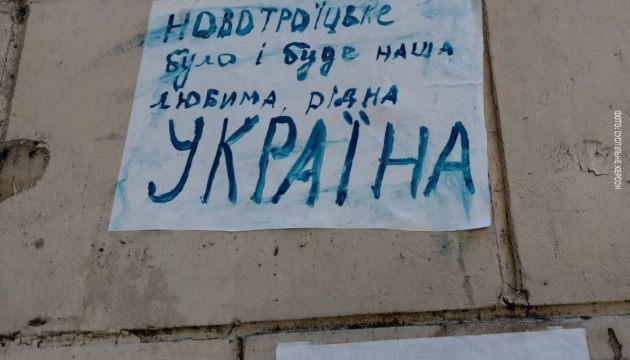 НОВОТРОЇЦЬКЕ
була і буде НАША
ЛЮБИМА, РІДНА
УКРАЇНА
ФОТО: СУСПІЛЬНЕ ХЕРСОН